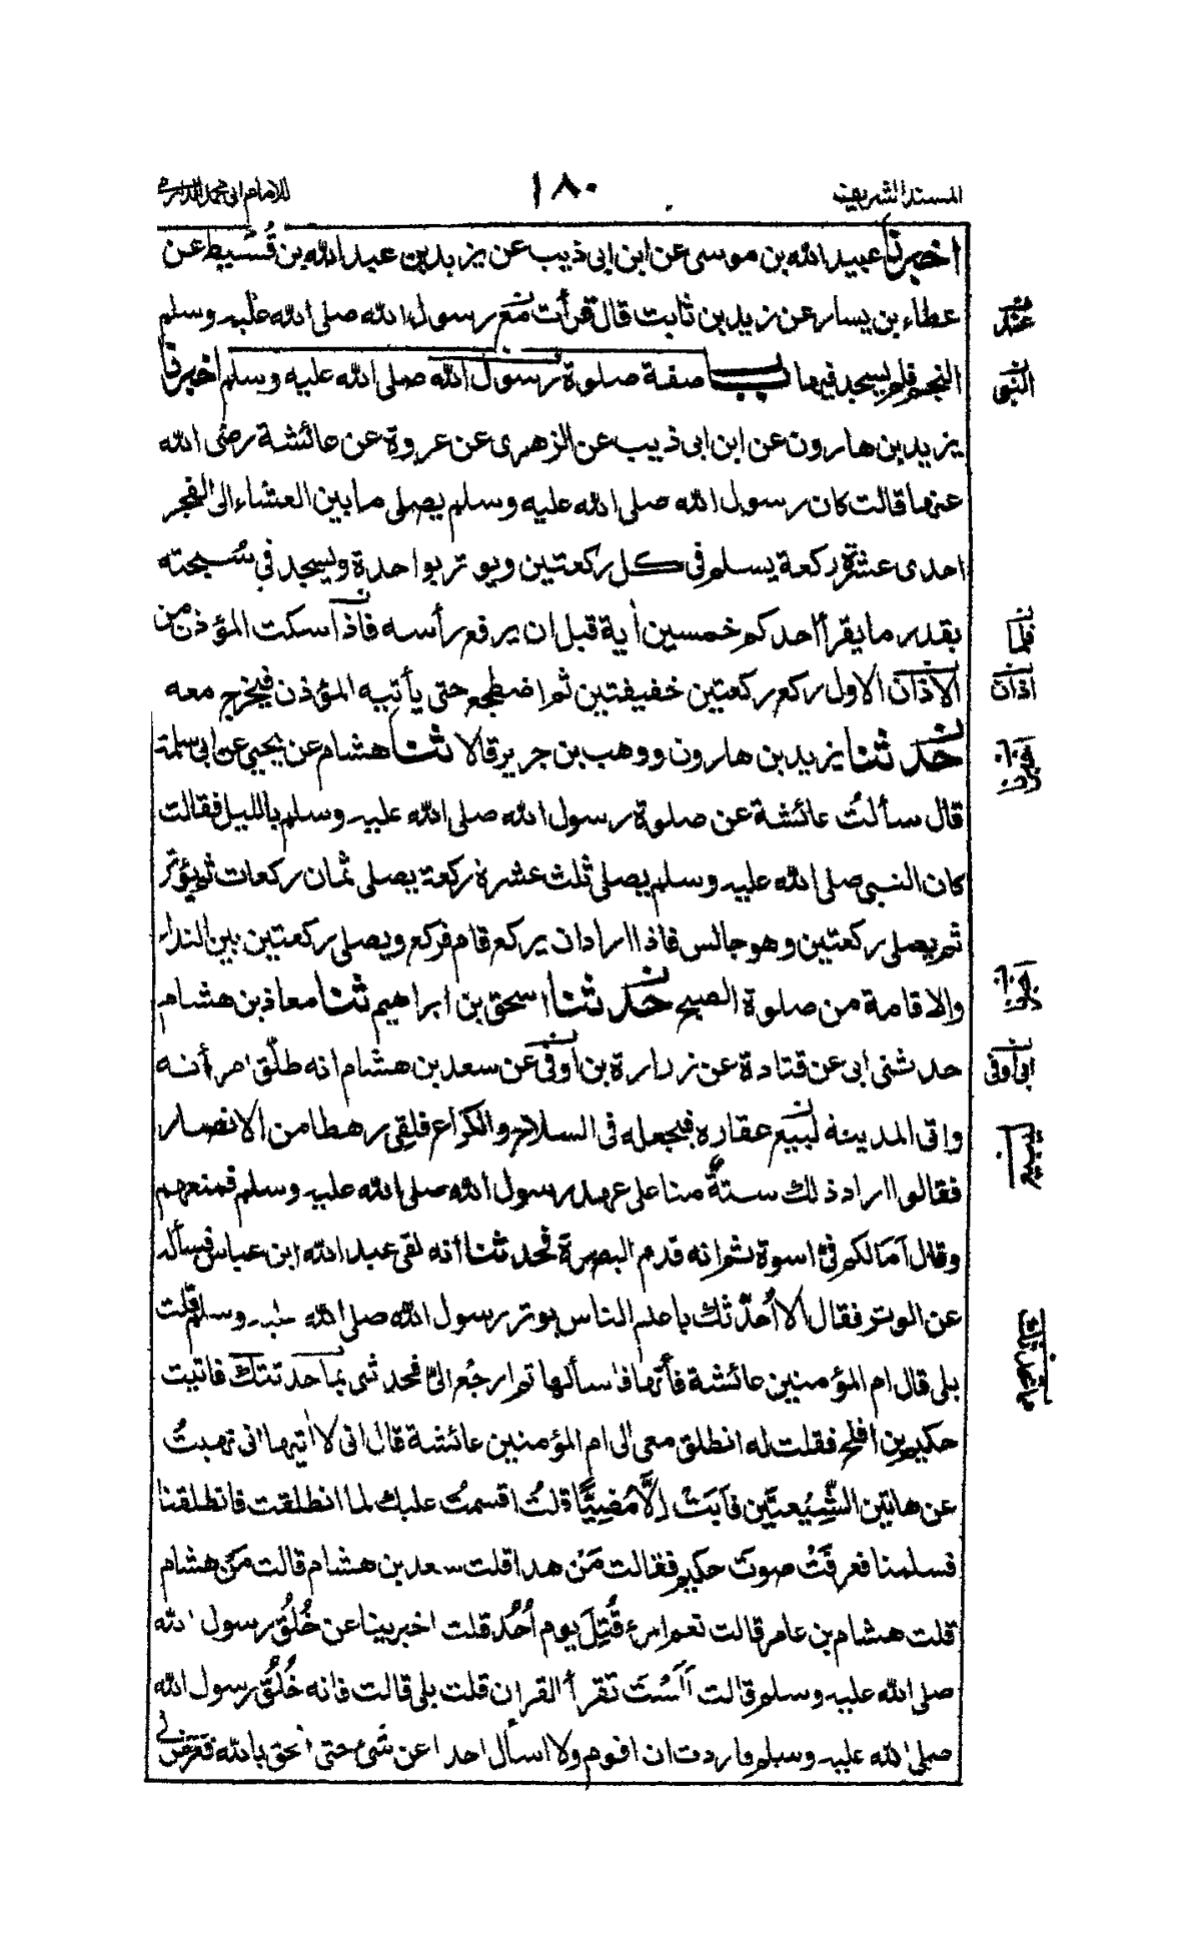 المسند الشريف
١٨٠
للامام ابى محمد الدارمى
اخبرنا عبيد الله بن موسى عن ابن ابى ذيب عن يزيد بن عبد الله بن قُسَيط عن
عطاء بن يسار عن زيد بن ثابت قال قرأت مع رسول الله صلى الله عليه وسلم
عند
النجم فلم يسجد فيها باب صفة صلوة رسول الله صلى الله عليه وسلم اخبرنا
النبى
يزيد بن هارون عن ابن ابى ذيب عن الزهرى عن عروة عن عائشة رضى الله
عنها قالت كان رسول الله صلى الله عليه وسلم يصلى ما بين العشاء الى الفجر
احدى عشرة ركعة يسلم فى كل ركعتين ويوتر بواحدة ويسجد فى سُبحته
بقدر ما يقرأ احدكم خمسين أية قبل ان يرفع رأسه فاذا سكت المؤذن من
فلما
الاذان الاول ركع ركعتين خفيفتين ثم اضطجع حتى يأتيه المؤذن فيخرج معه
اذان
حدثنا يزيد بن هارون ووهب بن جرير قالا ثنا هشام عن يحيى عن ابى سلمة
قال سألتُ عائشة عن صلوة رسول الله صلى الله عليه وسلم بالليل فقالت
كان النبى صلى الله عليه وسلم يصلى ثلث عشرة ركعة يصلى ثمان ركعات ثم يؤتر
ثم يصلى ركعتين وهو جالس فاذا اراد ان يركع قام فركع ويصلى ركعتين بين النداء
والاقامة من صلوة الصبح حدثنا اسحق بن ابراهيم ثنا معاذ بن هشام
حدثنى ابى عن قتادة عن زرارة بن اوفى عن سعد بن هشام انه طلّق امرأته
ابى اوفى
واتى المدينة لبيع عقاره فيجعله فى السلاح والكراع فلقى رهطا من الانصار
فقالوا اراد ذلك ستةٌ منا على عهد رسول الله صلى الله عليه وسلم فمنعهم
وقال اَمَا لكم فىّ اسوة ثم انه قدم البصرة فحدثنا انه لقى عبد الله ابن عباس فسأله
عن الوتر فقال الا اُحدّثك باعلم الناس بوتر رسول الله صلى الله عليه وسلم قلت
بلى قال ام المؤمنين عائشة فأتها فاسألها ثم ارجع الىّ فحدثنى بما حدثتك فاتيت
حكيم بن افلح فقلت له انطلق معى الى ام المؤمنين عائشة قال انى لا اتيها انى نهيتُ
عن هاتين الشِّيعتَين فاَبَتْ اِلَّا مُضِيًّا قلتُ اقسمتُ عليك لما انطلقت فانطلقنا
فسلمنا فعرفَتْ صوتَ حكيم فقالت مَنْ هذا قلت سعد بن هشام قالت مَنْ هشام
قلت هشام بن عامر قالت نعم امرء قُتِلَ يوم اُحُد قلت اخبرينا عن خُلُق رسول الله
صلى الله عليه وسلم قالت اَلَسْتَ تقرأ القران قلت بلى قالت فانه خُلُقُ رسول الله
صلى الله عليه وسلم فاردت ان اقوم ولا اسأل احدا عن شئ حتى الحق بالله فعرض لى